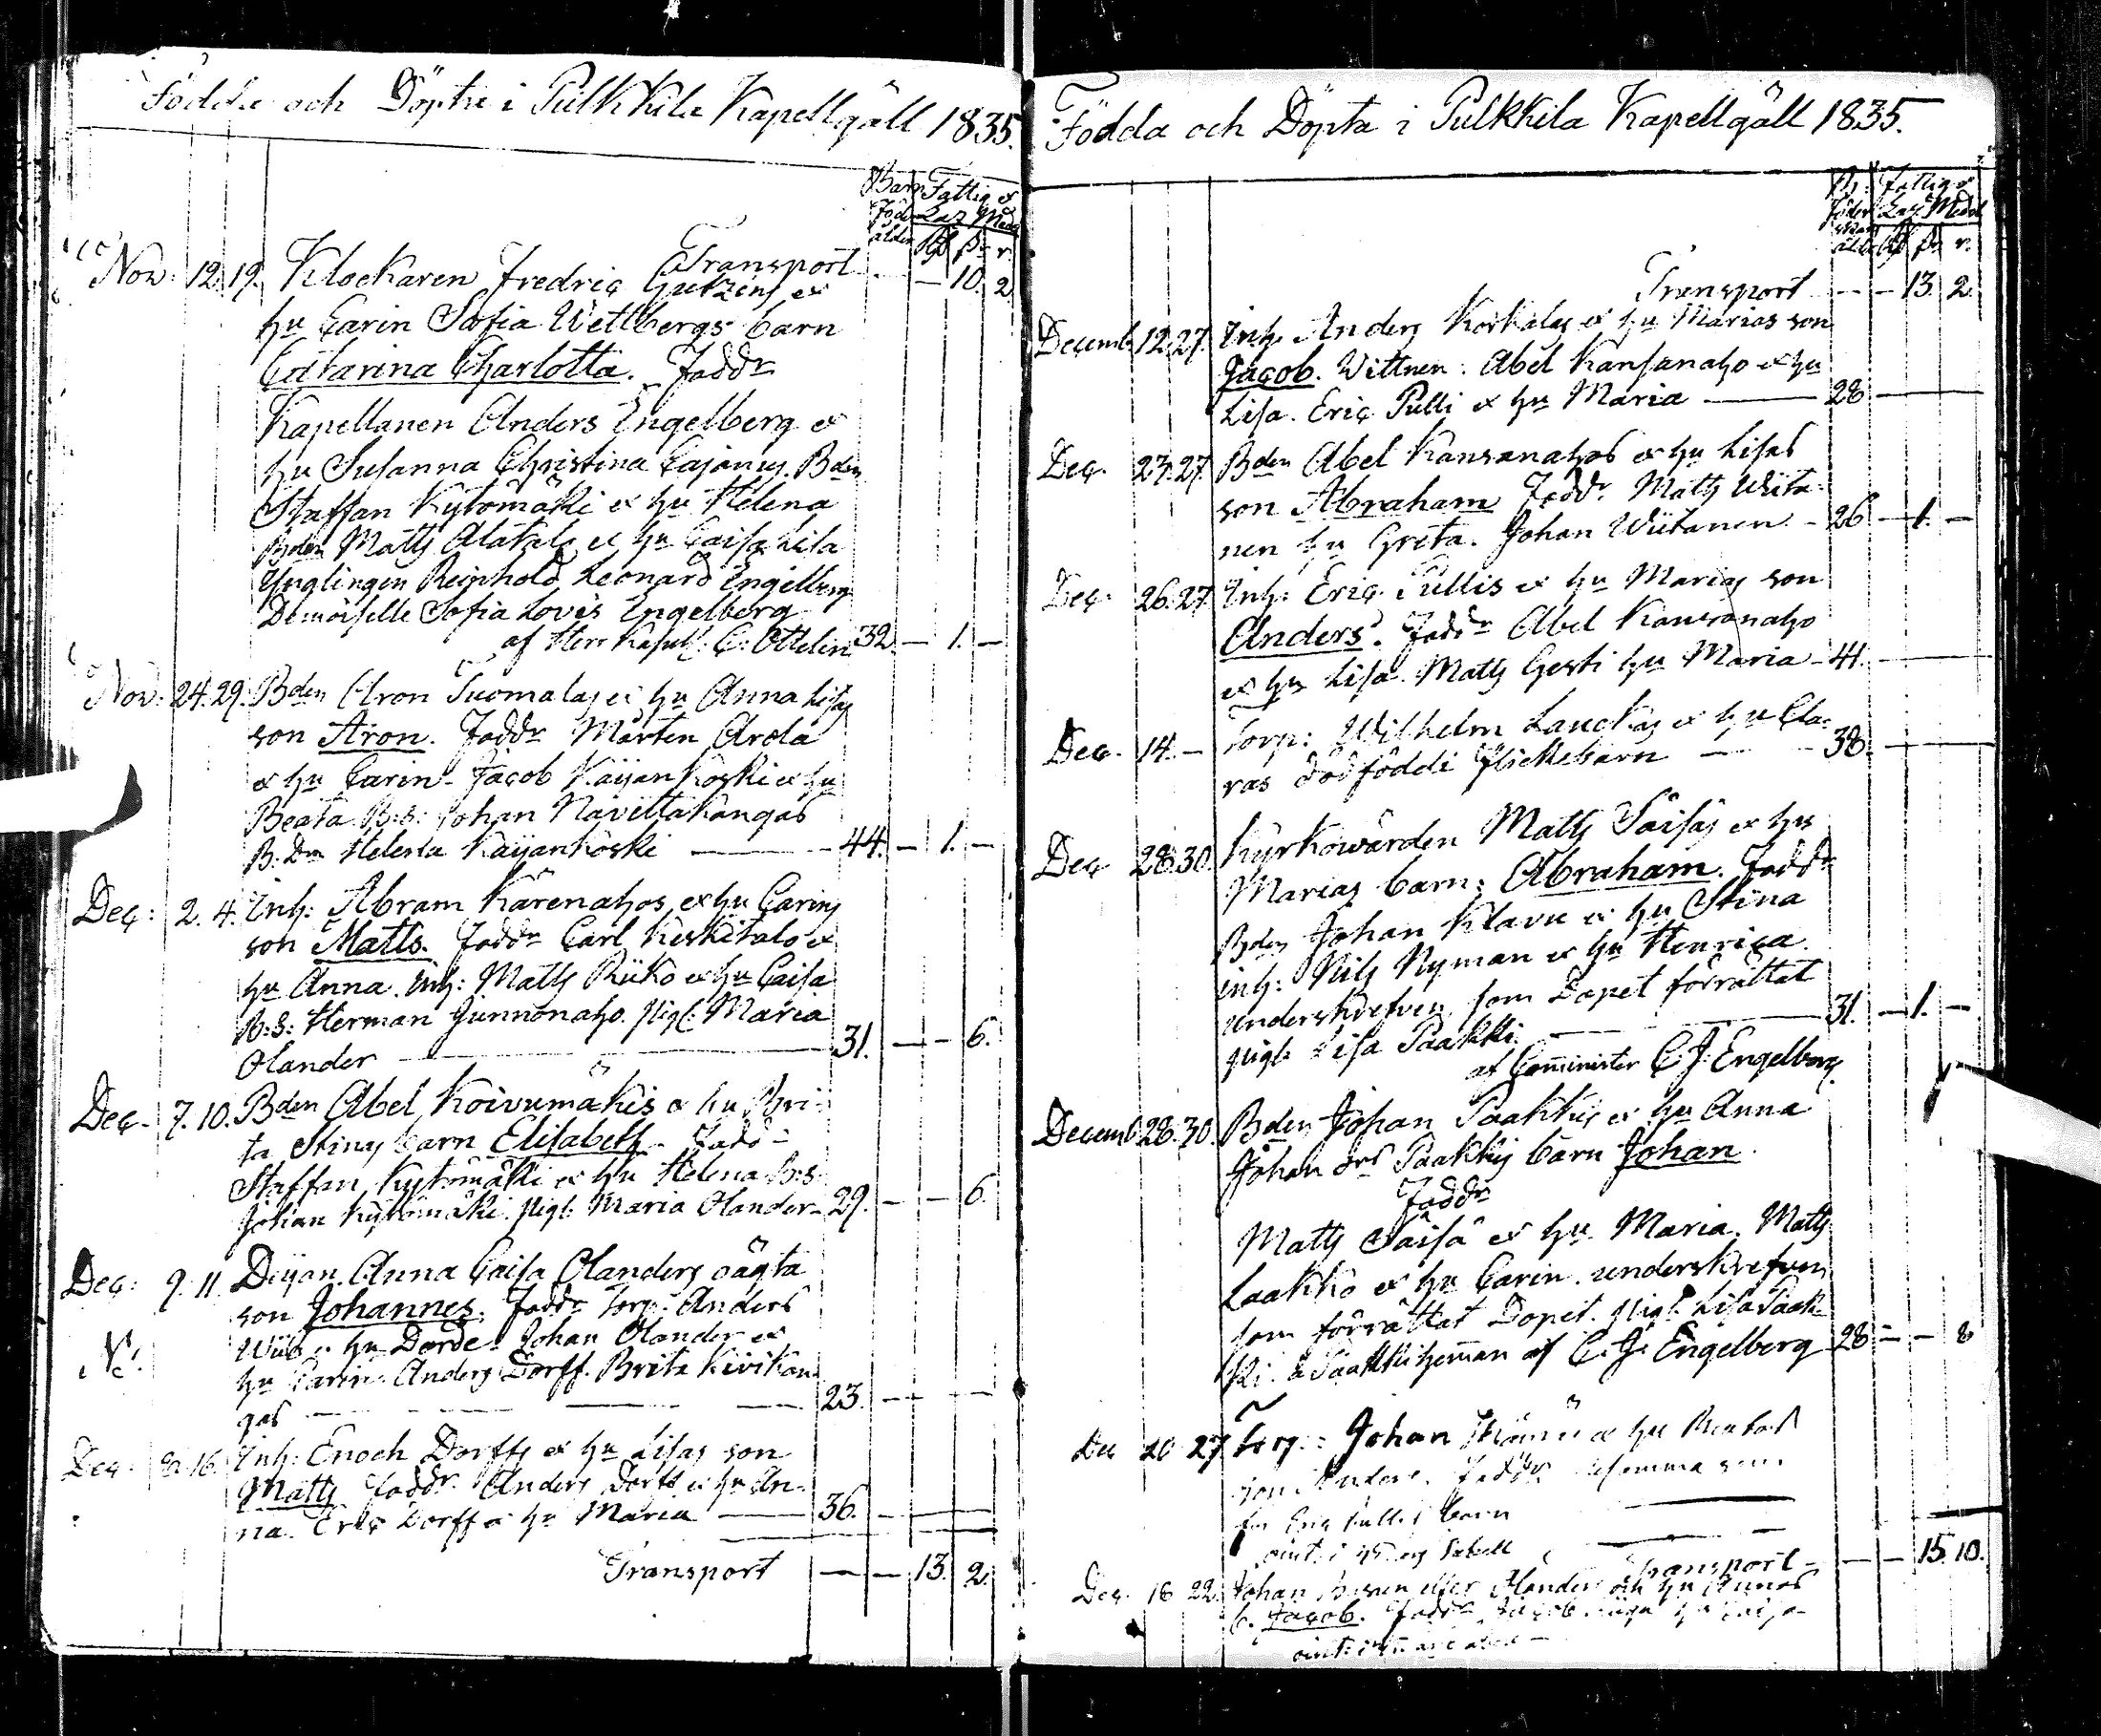 Födde och Döpte i Pulkkila Kapellgäll 1835.
Barn Fattig &
Föd Laz Med
ålder Rb ß r.
Transport — — 10. 2
Nov: 12. 19. Klockaren Fredric Gutzéns &
hu Carin Sofia Wettbergs barn
Catarina Charlotta. Faddr
Kapellanen Anders Engelberg &
hu Susanna Christina Cajanus. Bden
Staffan Kytömäki & hu Helena
Bden Matts Alatalo & hu Caisa Lisa
Ynglingen Reinhold Leonard Engelberg
Demoiselle Sofia Lovis Engelberg
af Herr Kapell: C: Ottelin 32 — 1. —
Nov: 24. 29. Bden Aron Tuomalas & hu Anna Lisas
son Aron. Faddr Mårten Arola
& hu Carin. Jacob Käyänkoski & hu
Beata B:s: Johan Navettakangas
B: Dr Helena Käyänkoski — 44. — 1. —
Dec: 2. 4. Inh: Abram Kärenahos & hu Carins
son Matts. Faddr Carl Keskitalo &
hu Anna. Inh: Matts Riiko & hu Caisa
B:s: Herman Junnonaho. Pig: Maria
Olander — 31. — — 6.
Dec. 7. 10. Bden Abel Koivumäkis & hu Bri-
ta Stinas barn Elisabeth. Fadd
Staffan Kytömäki & hu Helena B:s
Johan Kytömäki. Pig: Maria Olander 29. — — 6.
Dec: 9. 11. Deijan. Anna Caisa Olanders oägta
son Johannes. Faddr Torp: Anders
& hu Dorde. Johan Olander &
hu Carin. Anders Dorff. Brita Kivikan
gas — 23. — —
Dec. 16. Inh: Enoch Dorffs & hu Lisas son
Matts Faddr. Anders Dorff & hu An-
na. Eric Dorff & hu Maria — 36. —
Transport — — 13. 2.
Födda och Döpta i Pulkkila Kapellgäll 1835.
B: Fattig &
föder Laz: Medel
ålder Rb ß r.
Transport — — 13. 2.
Decemb. 12. 27. Inh. Anders Korkalas & hu Marias son
Jacob. Wittnen: Abel Kansanaho & hu
Lisa. Eric Pulli & hu Maria — 28 —
Dec. 23. 27. Bden Abel Kansanahos & hu Lisas
son Abraham Faddr. Matts Wiita-
nen hu Greta. Johan Wiitanen — 26 — 1. —
Dec. 26. 27 Inh: Eric Pullis & hu Marias son
Anders. Faddr Abel Kansanaho
& hu Lisa. Matts Gesti hu Maria — 41. —
Dec. 14. — Torp: Wilhelm Lauckas & hu Cla-
ras dödfödde flickebarn — 38. —
Dec 28. 30. Kyrkowärden Matts Säisäs & hu
Marias barn: Abraham. Faddr
Bden Johan Klavu & hu Stina
Inh: Nils Nyman & hu Henrica.
underskrefven som Dopet förrättat
pig: Lisa Paakki. — 31. — 1. —
af Comminister C J. Engelberg
Decemb 28. 30. Bden Johan Paakkis & hu Anna
Johan drs Paakkis barn Johan.
Faddr
Matts Säisä & hu Maria. Matts
Laakko & hu Carin. underskrefven
som förrättat Dopet. Pig: Lisa Paak-
ki. a Paakkihemman af C. J. Engelberg 28 — — 8
Dec 20 27 Torp: Johan & hu
son Anders. Faddr samma som
för Eric Pullis barn
Transport — — 15. 10.
Dec. 16 22. Johan eller Olanders och hu Annas
b. Jacob. Faddr Jacob hu Caisa